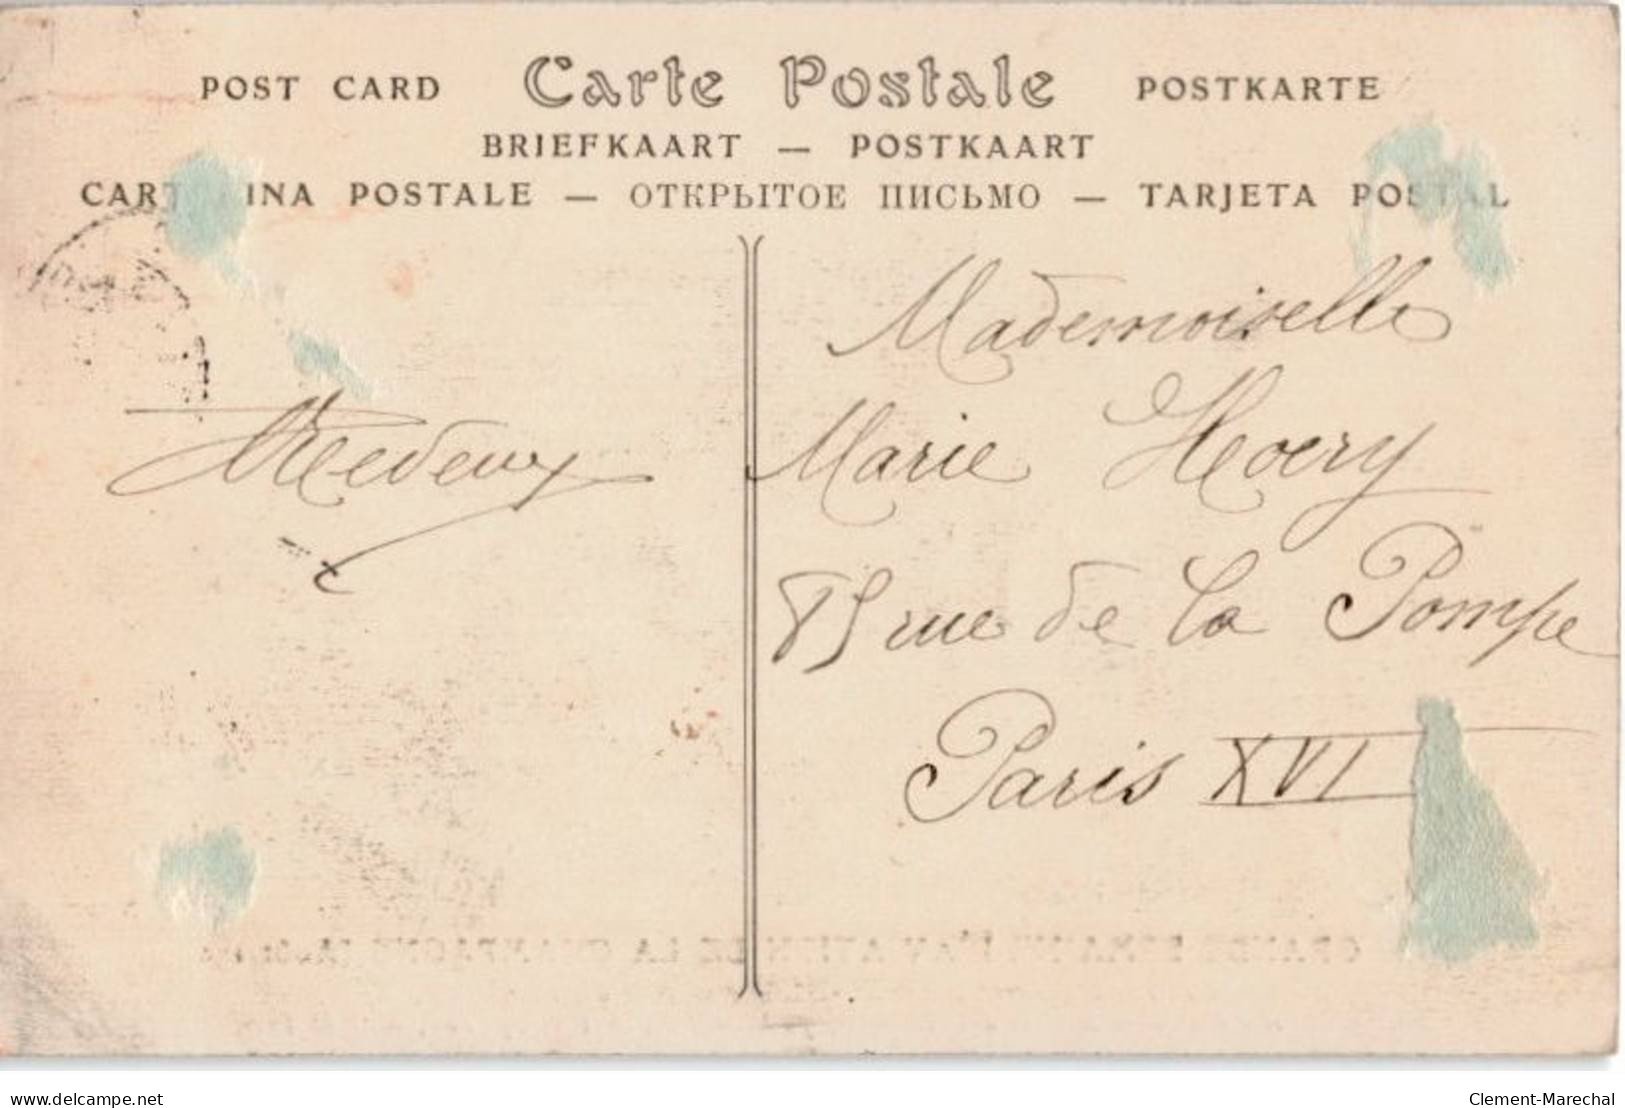 POST CARD Carte Postale POSTKARTE
BRIEFKAART — POSTKAART
CARTOLINA POSTALE — ОТКРЫТОЕ ПИСЬМО — TARJETA POSTAL
Mademoiselle
Marie
85 rue de la Pompe
Paris XVI
www.delcampe.net
Clement-Marechal